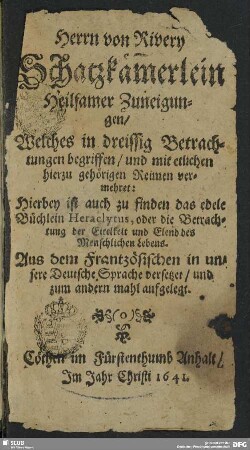 Herrn von Rivery
Schatzkämerlein
Heilsamer Zuneigun-
gen/
Welches in dreissig Betrach-
tungen begriffen / und mit etlichen
hierzu gehörigen Reimen ver-
mehret:
Hierbey ist auch zu finden das edele
Büchlein Heraclytus, oder die Betrach-
tung der Eitelkeit und Elend des
Menschlichen Lebens.
Aus dem Frantzösischen in un-
sere Deutsche Sprache versetzet / und
zum andern mahl aufgelegt.
(o)
Cöthen im Fürstenthumb Anhalt/
Im Jahr Christi 1641.
SLUB
DFG